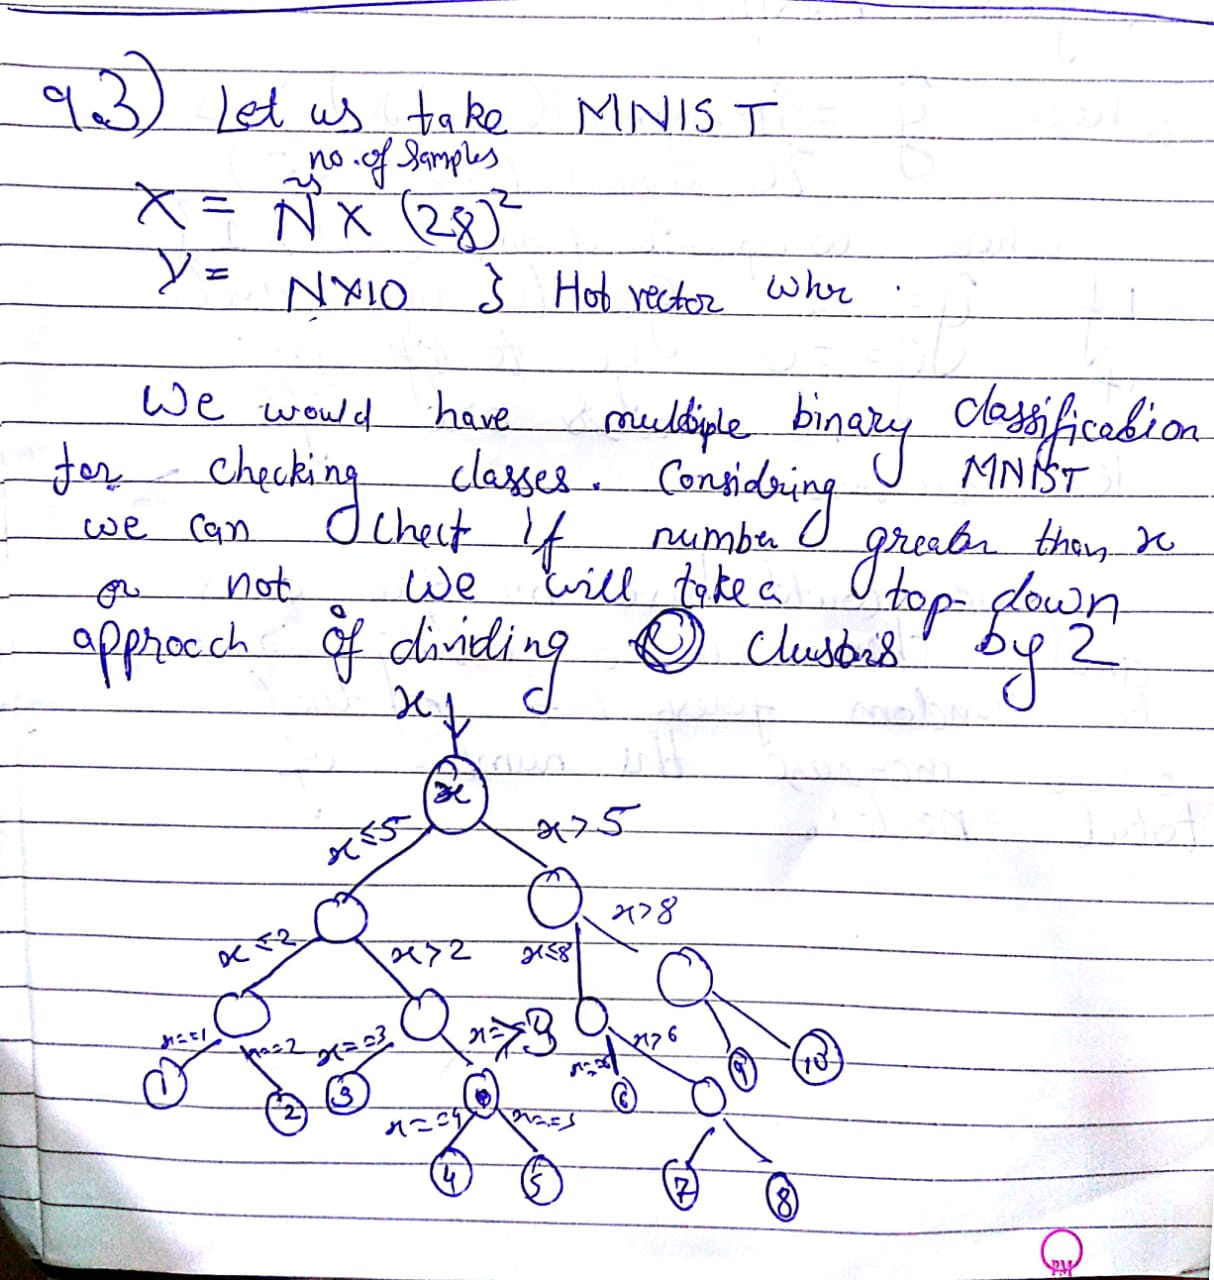 q3) Let us take MNIST
no. of Samples
X = N X (28)²
Y = NX10 } Hot vector whr
We would have multiple binary classification
for checking classes. Considring MNIST
we can check if number greater than x
or not. We will take a top-down
approach of dividing clusters by 2
x
x
x≤5 x>5
x>8
x≤2 x>2 x≤8
x==1 x==2 x==3 x>3 x>6
1 2 3 6 9 10
x==4 x==5
4 5 7 8
PM